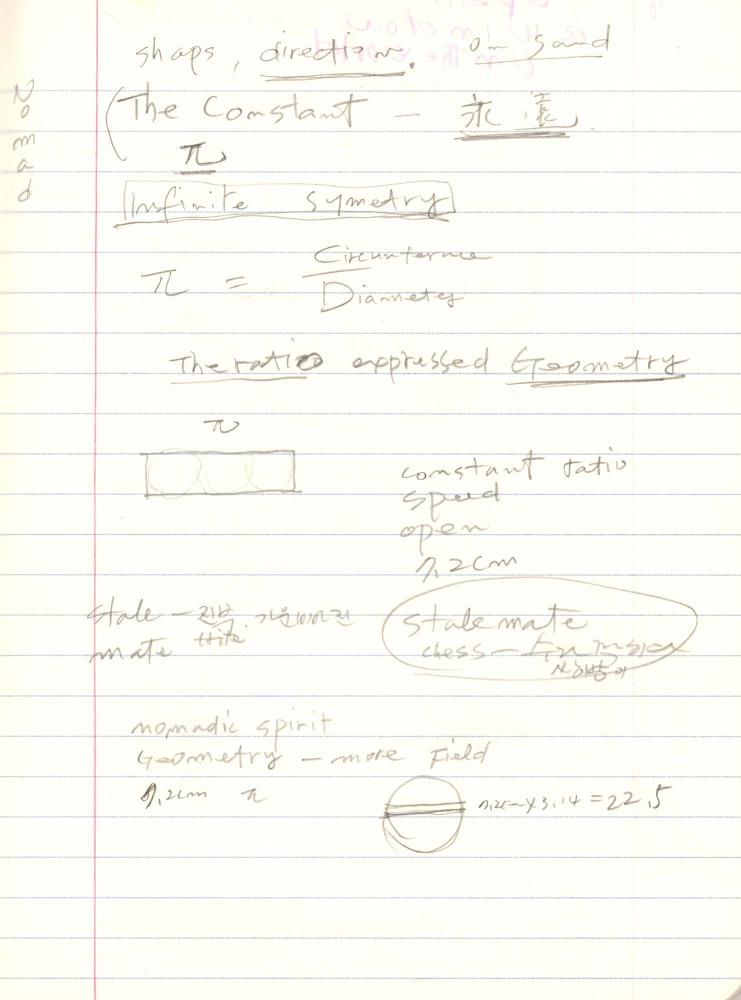 shaps, direction. on sand
Nomad
The Constant — 永遠
π
Infinite symetry
π = Circumference
Diameter
The ratio expressed Geometry
π
constant ratio
speed
open
7.2cm
stale — 진부
trite
mate
stalemate
chess —
nomadic spirit
Geometry — more Field
7.2cm π
7.2cm x 3.14 = 22.5